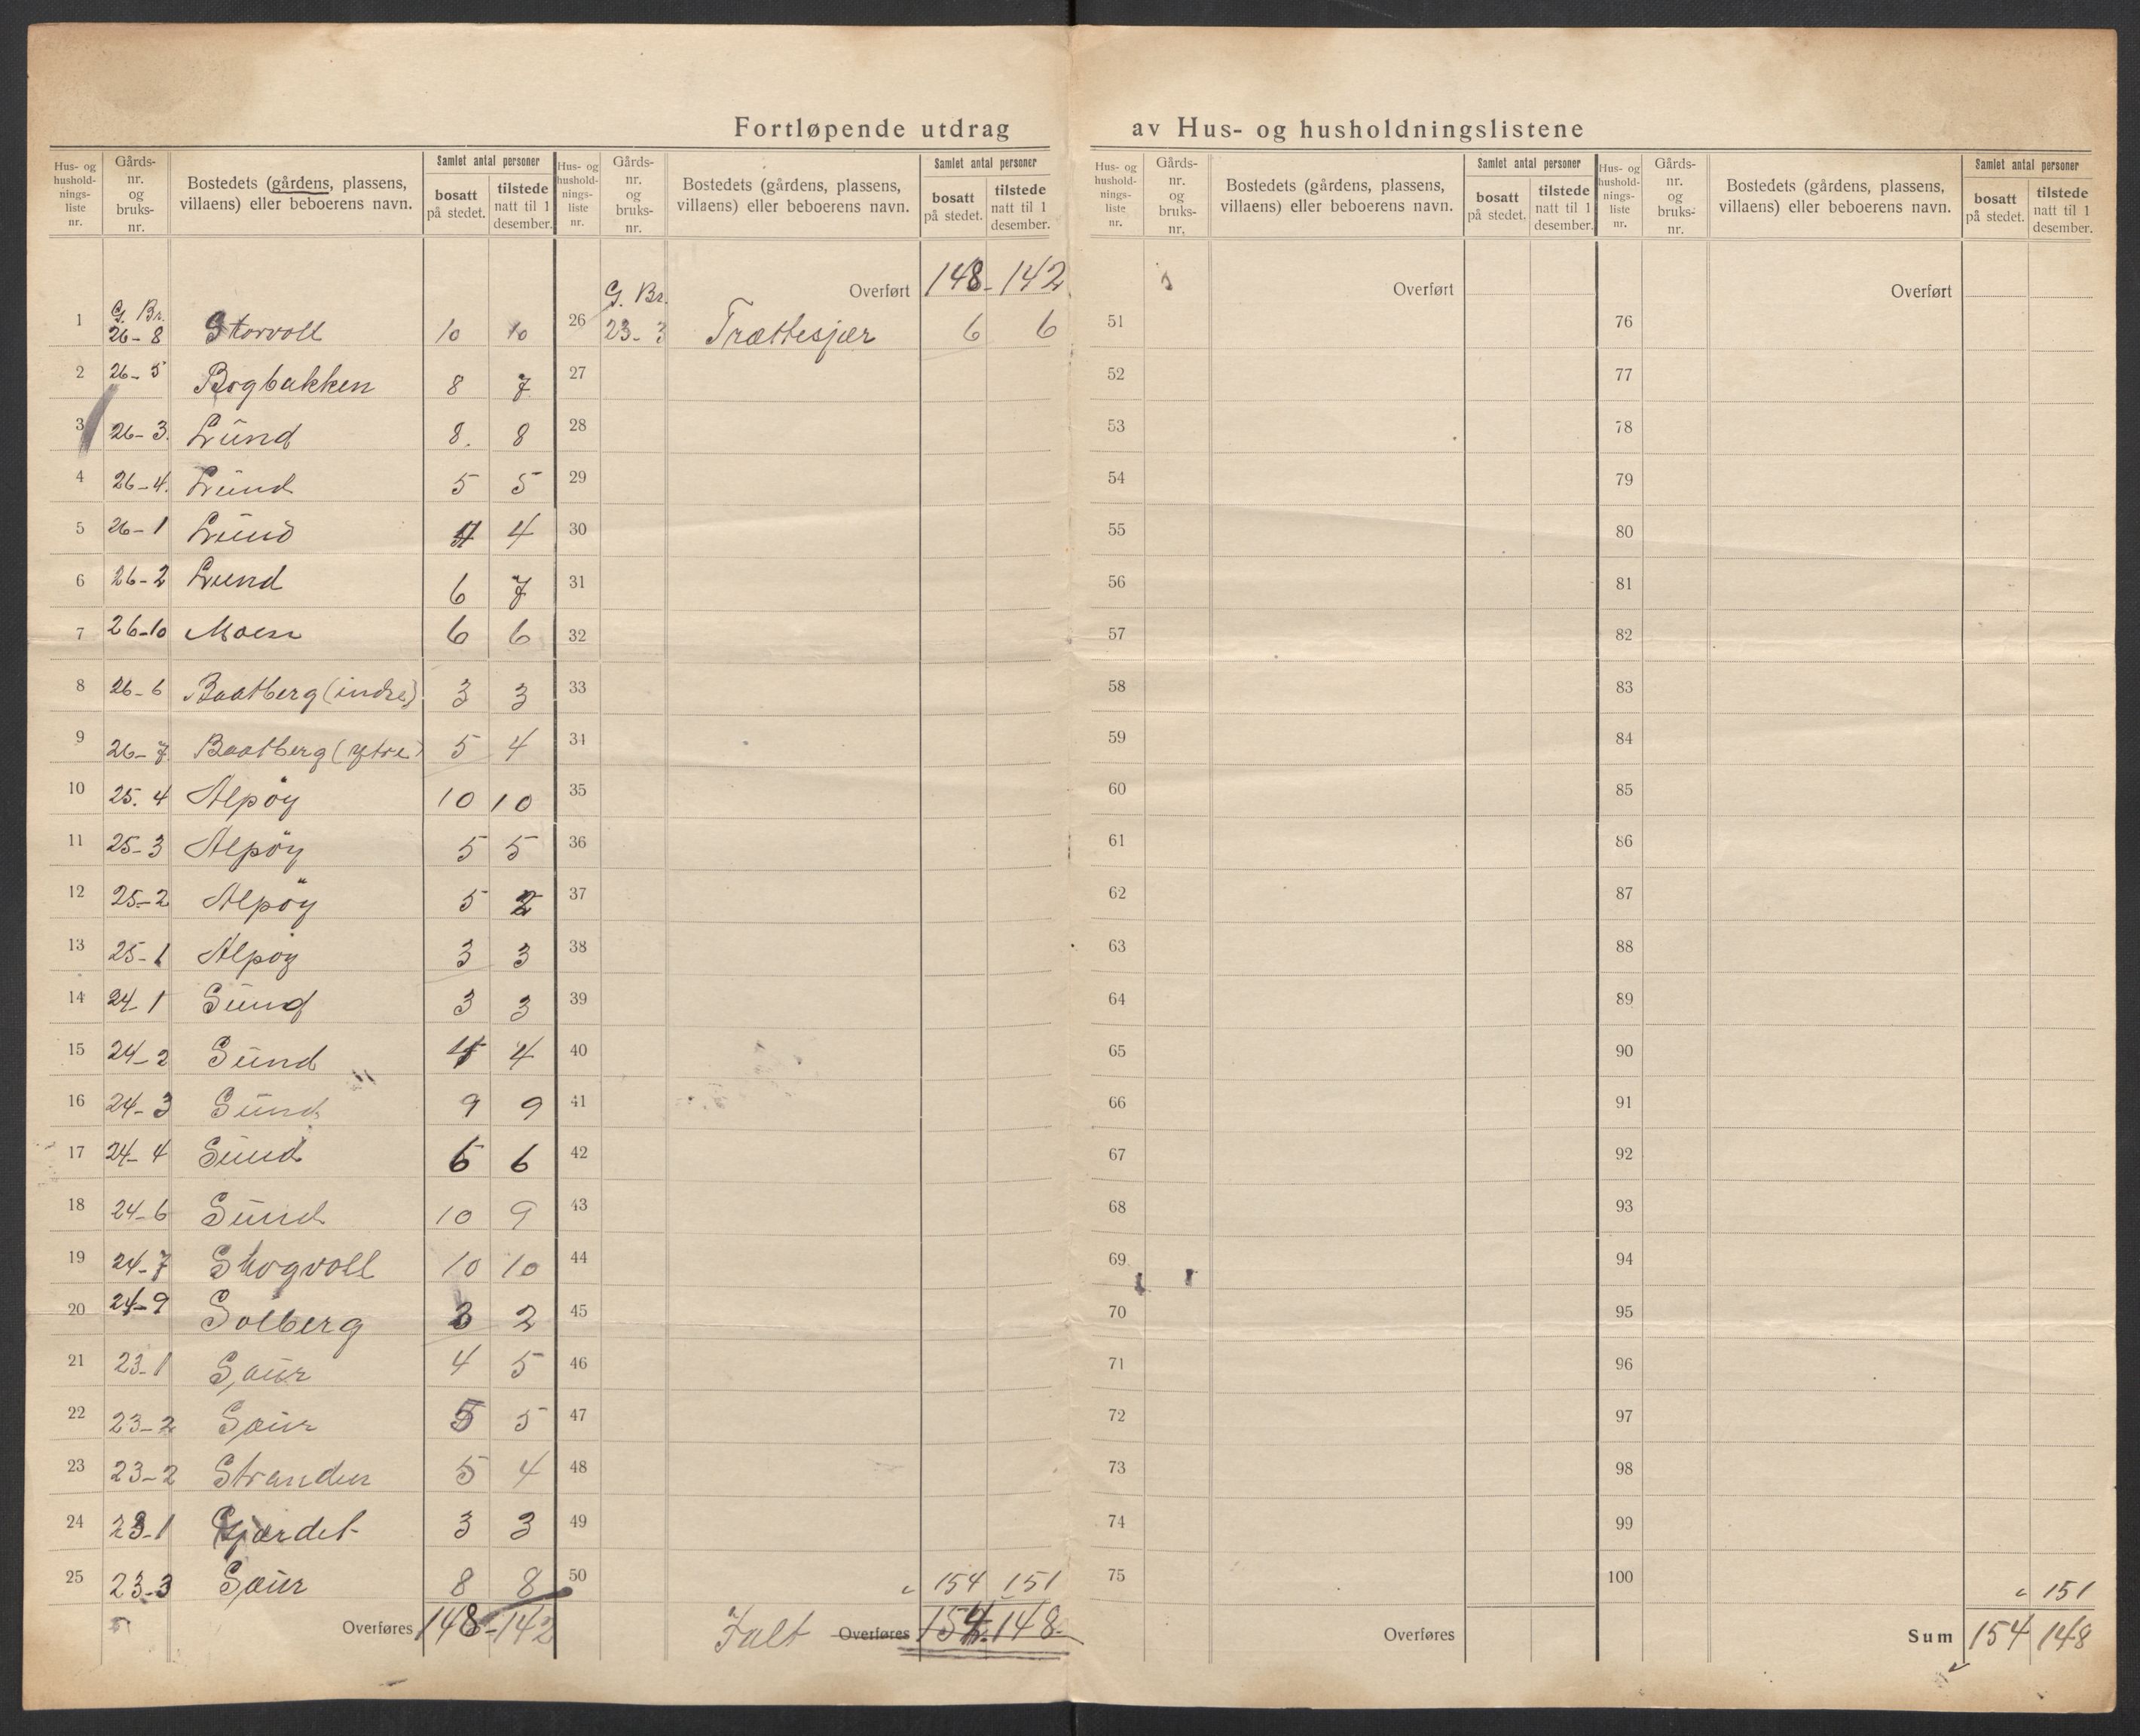 Fortløpende utdrag av Hus- og husholdningslistene
Hus- og husholdnings-liste nr. Gårds-nr. og bruks-nr. Bostedets (gårdens, plassens, villaens) eller beboerens navn. Samlet antal personer bosatt på stedet. tilstede natt til 1 desember.
G. Br.
1 26-8 Storvoll 10 10
2 26-5 Bogbakken 8 7
3 26-3. Lund 8. 8
4 26-4. Lund 5 5
5 26-1 Lund 4 4
6 26-2 Lund 6 7
7 26-10 Moen 6 6
8 26-6 Baatberg (indre) 3 3
9 26-7. Baatberg (ytre) 5 4
10 25.4 Alpöy 10 10
11 25-3 Alpöy 5 5
12 25-2 Alpöy 5 2
13 25-1 Alpöy 3 3
14 24-1 Sund 3 3
15 24-2 Sund 4 4
16 24-3 Sund 9 9
17 24-4 Sund 6 6
18 24-6 Sund 10 9
19 24-7 Skogvoll 10 10
20 24-9 Solberg 3 2
21 23-1 Saur 4 5
22 23-2 Saur 5 5
23 23-2 Stranden 5 4
24 23-1 Gjærdet 3 3
25 23-3 Saur 8 8
Overføres 148-142
Hus- og husholdnings-liste nr. Gårds-nr. og bruks-nr. Bostedets (gårdens, plassens, villaens) eller beboerens navn. Samlet antal personer bosatt på stedet. tilstede natt til 1 desember.
Overført 148-142
G. Br.
26 23-3 Trættesjær 6 6
27
28
29
30
31
32
33
34
35
36
37
38
39
40
41
42
43
44
45
46
47
48
49
50 154 151
Ialt Overføres 154.148.
Hus- og husholdnings-liste nr. Gårds-nr. og bruks-nr. Bostedets (gårdens, plassens, villaens) eller beboerens navn. Samlet antal personer bosatt på stedet. tilstede natt til 1 desember.
Overført
51
52
53
54
55
56
57
58
59
60
61
62
63
64
65
66
67
68
69
70
71
72
73
74
75
Overføres
Hus- og husholdnings-liste nr. Gårds-nr. og bruks-nr. Bostedets (gårdens, plassens, villaens) eller beboerens navn. Samlet antal personer bosatt på stedet. tilstede natt til 1 desember.
Overført
76
77
78
79
80
81
82
83
84
85
86
87
88
89
90
91
92
93
94
95
96
97
98
99
100 151
Sum 154 148